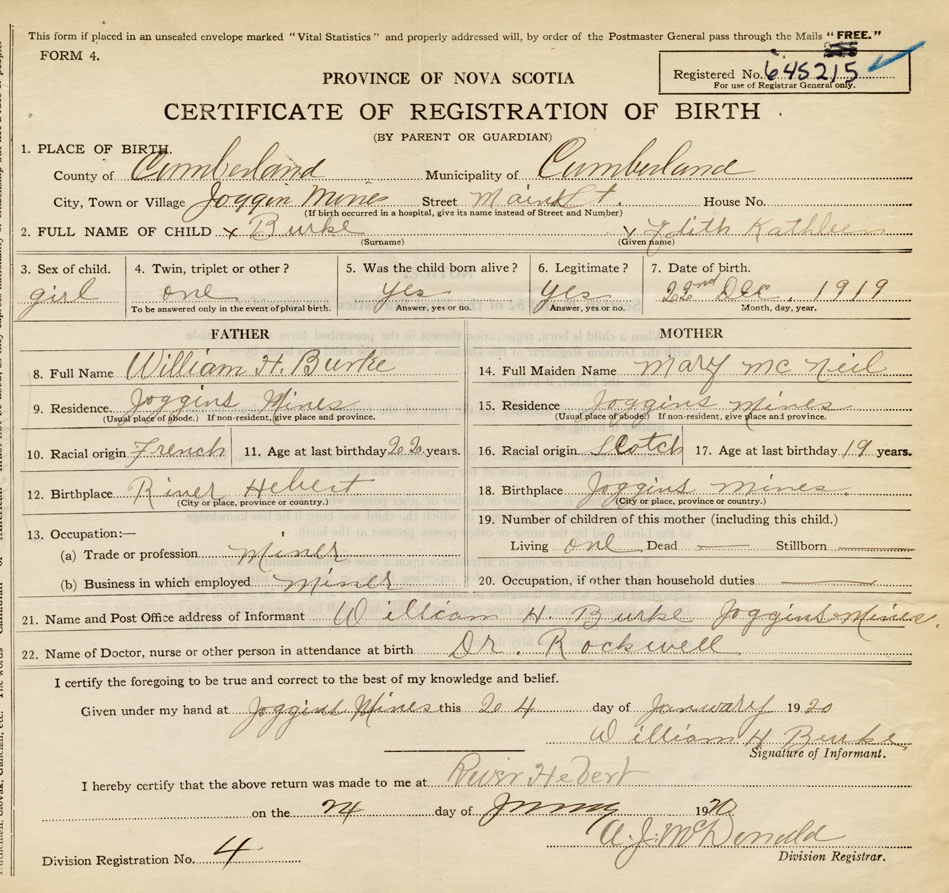 This form if placed in an unsealed envelope marked "Vital Statistics" and properly addressed will, by order of the Postmaster General pass through the Mails "FREE."
FORM 4.
Registered No. 645215
For use of Registrar General only.
PROVINCE OF NOVA SCOTIA
CERTIFICATE OF REGISTRATION OF BIRTH
(BY PARENT OR GUARDIAN)
1. PLACE OF BIRTH.
County of Cumberland Municipality of Cumberland
City, Town or Village Joggin Mines Street Main St. House No.
(If birth occurred in a hospital, give its name instead of Street and Number)
2. FULL NAME OF CHILD x Burke x Edith Kathleen
(Surname) (Given name)
3. Sex of child. 4. Twin, triplet or other? 5. Was the child born alive? 6. Legitimate? 7. Date of birth.
girl one Yes Yes 22nd Dec. 1919
To be answered only in the event of plural birth. Answer, yes or no. Answer, yes or no. Month, day, year.
FATHER MOTHER
8. Full Name William H. Burke 14. Full Maiden Name Mary McNeil
9. Residence. Joggins Mines 15. Residence Joggins Mines
(Usual place of abode.) If non-resident, give place and province. (Usual place of abode.) If non-resident, give place and province.
10. Racial origin French 11. Age at last birthday 22 years. 16. Racial origin Scotch 17. Age at last birthday 19 years.
12. Birthplace River Hebert 18. Birthplace Joggins Mines.
(City or place, province or country.) (City or place, province or country.)
13. Occupation:— 19. Number of children of this mother (including this child.)
(a) Trade or profession Miner Living one Dead — Stillborn —
(b) Business in which employed Miner 20. Occupation, if other than household duties —
21. Name and Post Office address of Informant William H. Burke Joggins Mines.
22. Name of Doctor, nurse or other person in attendance at birth Dr. Rockwell
I certify the foregoing to be true and correct to the best of my knowledge and belief.
Given under my hand at Joggins Mines this 24 day of January 1920
William H Burke
Signature of Informant.
I hereby certify that the above return was made to me at River Hebert
on the 24 day of January 1920
A. J. McDonald
Division Registrar.
Division Registration No. 4